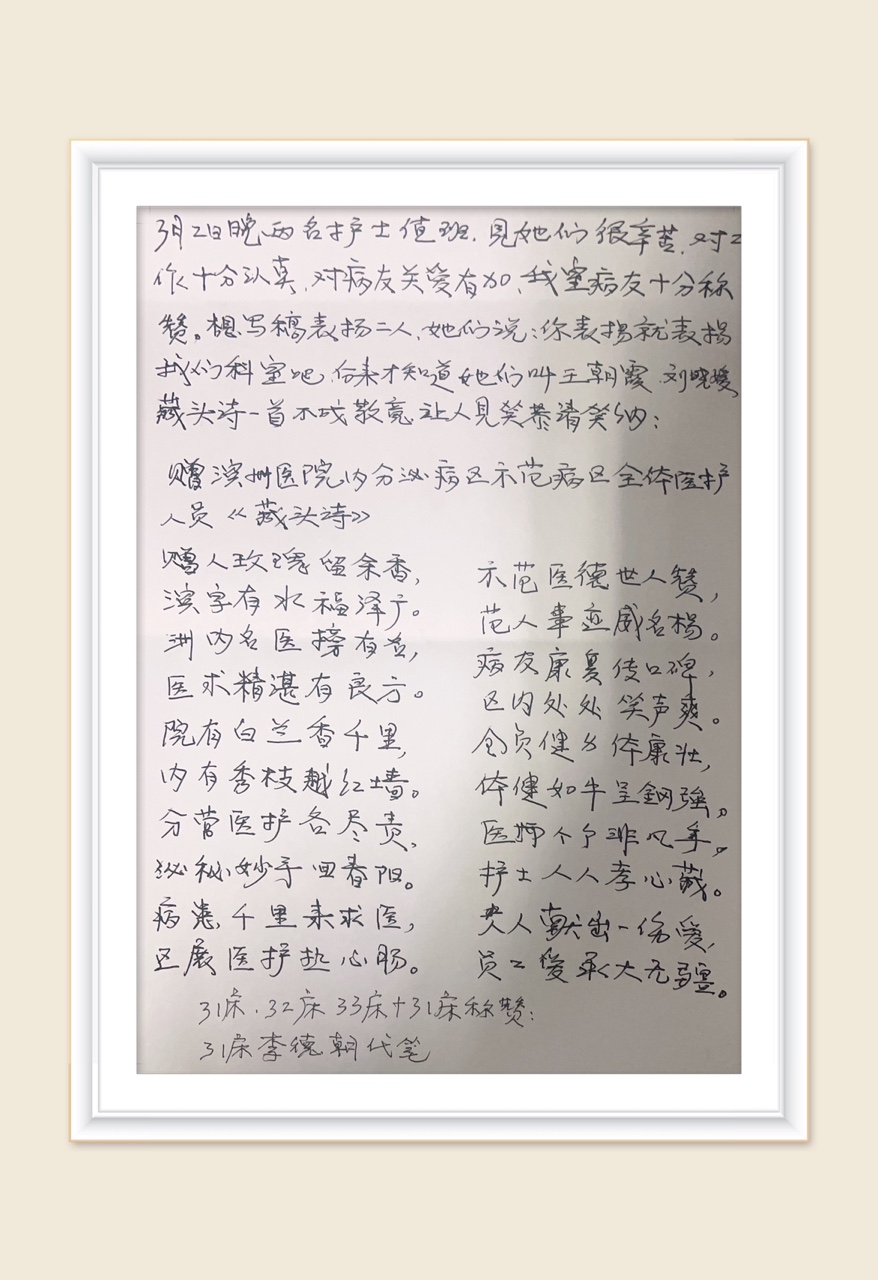 3月2日晚两名护士值班,见她们很辛苦,对工
作十分认真,对病友关爱有加,我室病友十分称
赞。想写稿表扬二人,她们说:你表扬就表扬
我们科室吧,后来才知道她们叫王朝霞、刘晓媛
藏头诗一首不成敬意让人见笑恭请笑纳:
赠滨州医院内分泌病区示范病区全体医护
人员《藏头诗》
赠人玫瑰留余香,
滨字有水福泽广。
洲内名医擦有益,
医术精湛有良方。
院有白兰香千里,
内有秀枝越红墙。
分管医护各尽责,
泌秘妙手回春阳。
病患千里来求医,
区展医护热心肠。
示范医德世人赞,
范人事迹威名扬。
病友康复传口碑,
区内处处笑声爽。
全员健步体康壮,
体健如牛呈钢强,
医师个个非凡手,
护士人人孝心藏。
人献出一份爱,
员工爱承大无疆。
31床.32床33床+31床称赞:
31床李德朝代笔